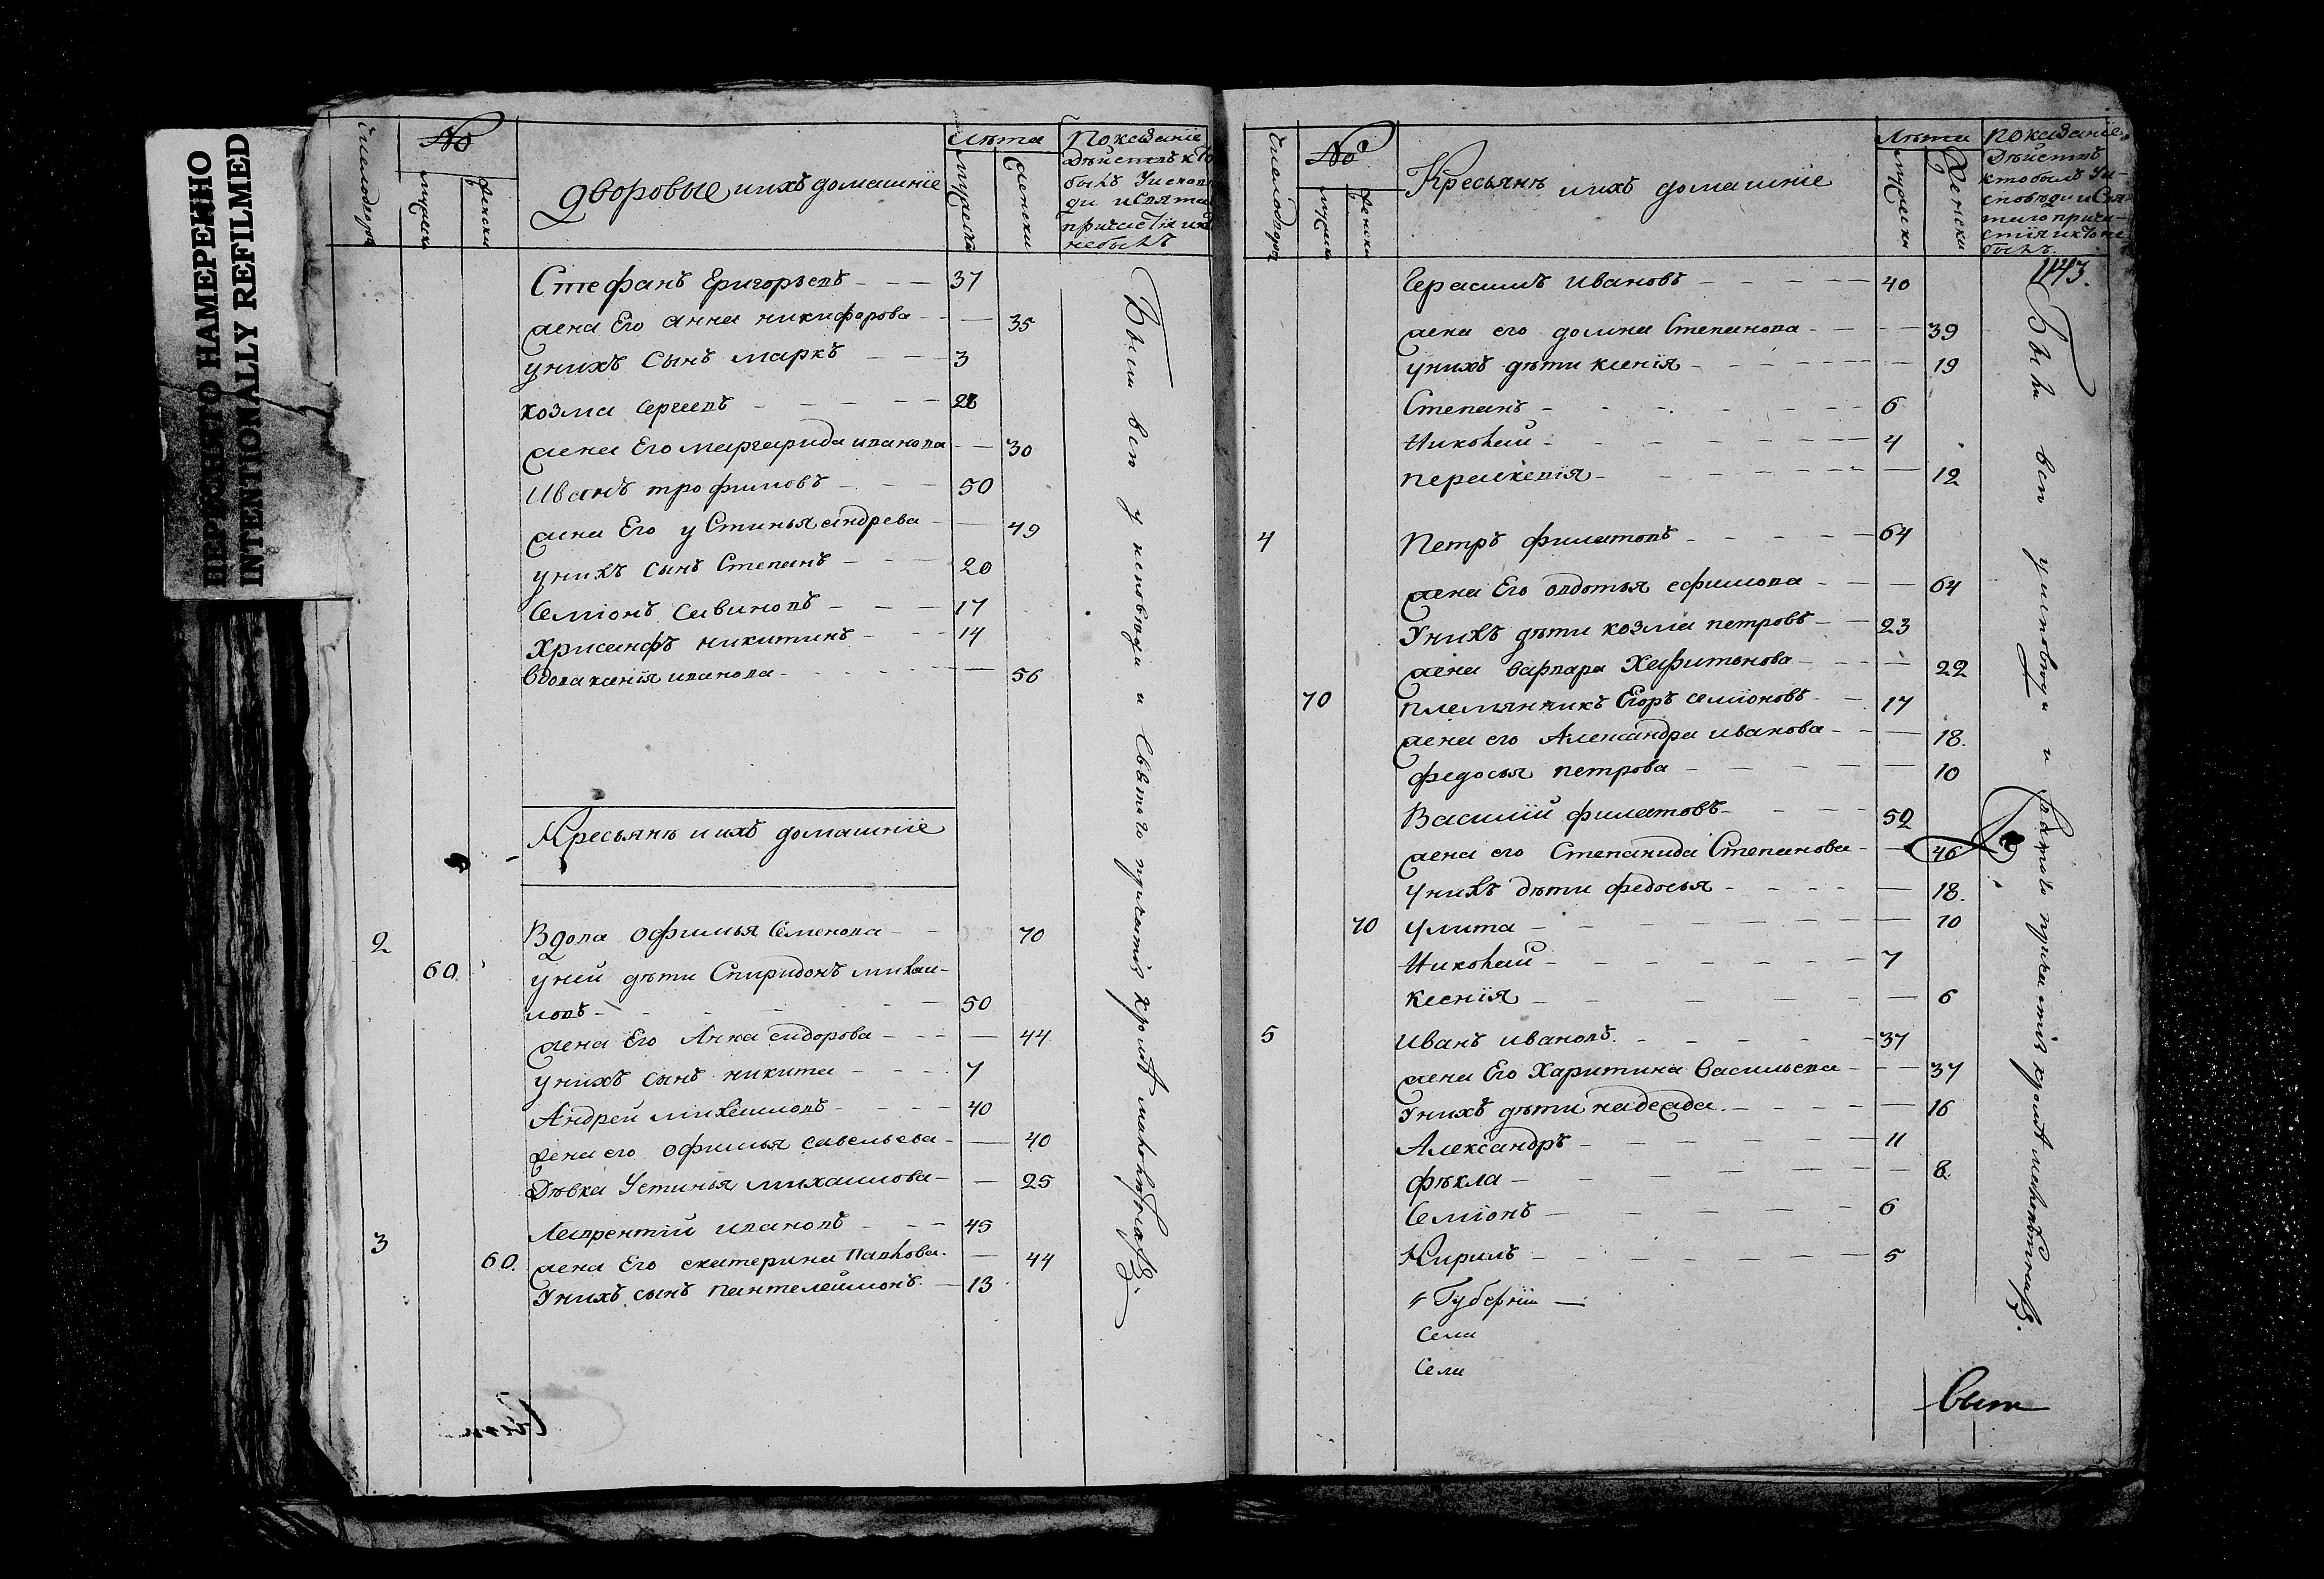 НЕРЕЗКО НАМЕРЕННО
INTENTIONALLY REFILMED
число дворов
№
мужеска
женска
Дворовые и ихъ домашніе
Лѣта
мужеска
женска
Показаніе
Дѣйствъ кто
былъ У исповѣ
ди и Свята
причастія и кто
небылъ
Стефанъ Григорьевъ 37
жена Его анна никифорова 35
у нихъ Сынъ маркъ 3
козма сергеевъ
жена Его маргарида иванова 30
Иванъ трофимовъ 50
жена Его устинья андрева 49
у нихъ сынъ Степанъ 20
Семіонъ Савиновъ 17
Хрисанфъ никитинъ 14
вдова ксенія иванова 56
Были вси у исповѣди и святаго причастія кромѣ малолѣтнахъ
Кресьянъ и ихъ домашніе
2 Вдова офимья Семенова 70
60 у ней дѣти Спиридонъ михаи-
ловъ 50
жена Его Анна сидорова 44
у нихъ сынъ никита 7
Андрей михаиловъ 40
жена его офимья савельева 40
Дѣвка Устинья михаилова 25
3 Лаврентий ивановъ 45
60. жена Его екатерина Павлова 44
У нихъ сынъ пантелеймонъ 13
число дворов
№
мужеска
женска
Кресьянъ и ихъ домашніе
Лѣта
мужески
Женски
Показаніе
Дѣйствъ
кто былъ У и-
сповѣди и Свя-
таго прича-
стія и кто не
былъ.
1143.
Герасимъ Ивановъ 40
жена его домна Степанова 39
у нихъ дѣти ксенія 19
Степанъ 6
Николай 4
парасковія 12
4 Петръ филатовъ 64
жена Его овдотья ефимова 64
У нихъ дѣти козма петровъ 23
жена варвара Харитонова 22
70 племянникъ Егоръ семіоновъ 17
жена его Александра иванова 18.
федосья петрова 10
Василій филатовъ 52
жена его Степанида Степанова 46
У нихъ дѣти федосья 18.
70 улита 10
Николай 7
ксенія 6
5 Иванъ ивановъ 37
жена Его Харитина васильева 37
У нихъ дѣти надежда 16
Александръ 11
фѣкла 8
Семіонъ 6
Кирилъ 5
Губерніи
Села
Села
Были вси у исповѣди и святаго причастія кромѣ малолѣтнахъ.